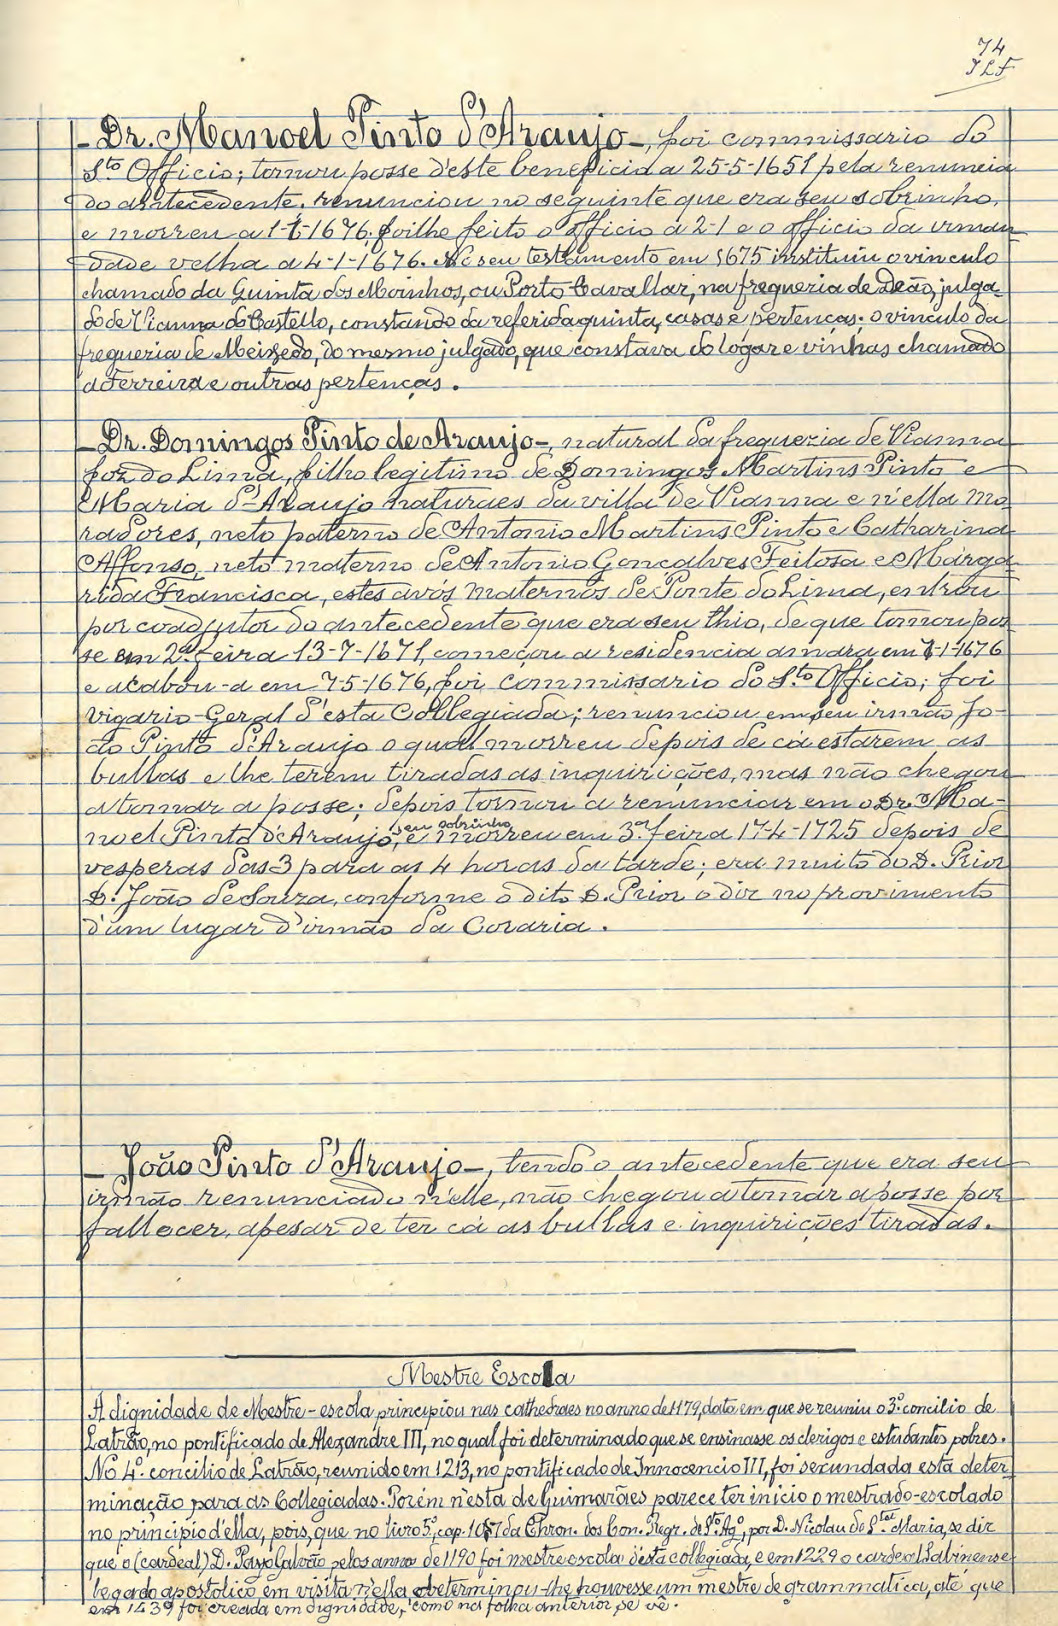 74
JLF
- Dr. Manoel Pinto d'Araujo -, foi commissario do
Sto Officio; tomou posse d'este beneficio a 25-5-1651 pela renuncia
do antecedente, renunciou no seguinte que era seu sobrinho,
e morreu a 1-1-1676. Foilhe feito o officio a 2-1 e o officio da irman
dade velha a 4-1-1676. No seu testamento em 1675 instituiu o vinculo
chamado da Quinta dos Moinhos, ou Porto Cavallar, na freguezia de Deão, julga-
do de Vianna do Castello, constando da referida quinta, casas e pertenças; o vinculo da
freguezia de Meixedo, do mesmo julgado, que constava do logar e vinhas chamado
a Ferreira e outras pertenças.
- Dr. Domingos Pinto de Araujo -, natural da freguezia de Vianna
foz do Lima, filho legitimo de Domingos Martins Pinto e
Maria d'Araujo naturaes da villa de Vianna e n'ella mo
radores, neto paterno de Antonio Martins Pinto e Catharina
Affonso, neto materno de Antonio Gonçalves Feitosa e Marga
rida Francisca, estes avós maternos de Ponte do Lima, entrou
por coadjutor do antecedente que era seu thio, de que tomou pos
se em 2ª feira 13-7-1671, começou a residencia amara em 7-1-1676
e acabou-a em 7-5-1676, foi commissario do Sto Officio; foi
vigario-Geral d'esta Collegiada; renunciou em seu irmão Jo-
ão Pinto d'Araujo o qual morreu depois de cá estarem as
bullas e lhe terem tiradas as inquirições, mas não chegou
a tomar a posse; depois tornou a renunciar em o Dr. Ma-
noel Pinto d'Araujo, seu sobrinho, e morreu em 3ª feira 17-4-1725 depois de
vesperas das 3 para as 4 horas da tarde; era muito do D. Prior
D. João de Souza, conforme o dito D. Prior o diz no provimento
d'um lugar d'irmão da Coraria.
- João Pinto d'Araujo -, tendo o antecedente que era seu
irmão renunciado n'elle, não chegou a tomar a posse por
fallecer, apesar de ter cá as bullas e inquirições tiradas.
Mestre Escola
A dignidade de Mestre-escola principiou nas cathedraes no anno de 1179, data em que se reuniu o 3º concilio de
Latrão, no pontificado de Alexandre III, no qual foi determinado que se ensinasse os clerigos e estudantes pobres.
No 4º concilio de Latrão, reunido em 1213, no pontificado de Innocencio III, foi secundada esta deter
minação para as Collegiadas. Porém n'esta de Guimarães parece ter inicio o mestrado-escolado
no principio d'ella, pois, que no livro 5º, cap. 10 da Chron. dos Con. Regr. de Sto Agº, por D. Nicolau de Sta Maria, se diz
que o (cardeal) D. Payo Galvão pelos annos de 1190 foi mestre escola d'esta collegiada, e em 1229 o cardeal Sabinense
legado apostolico em visita n'ella determinou-lhe houvesse um mestre de grammatica, até que
em 1439 foi creada em dignidade, como na folha anterior se vê.